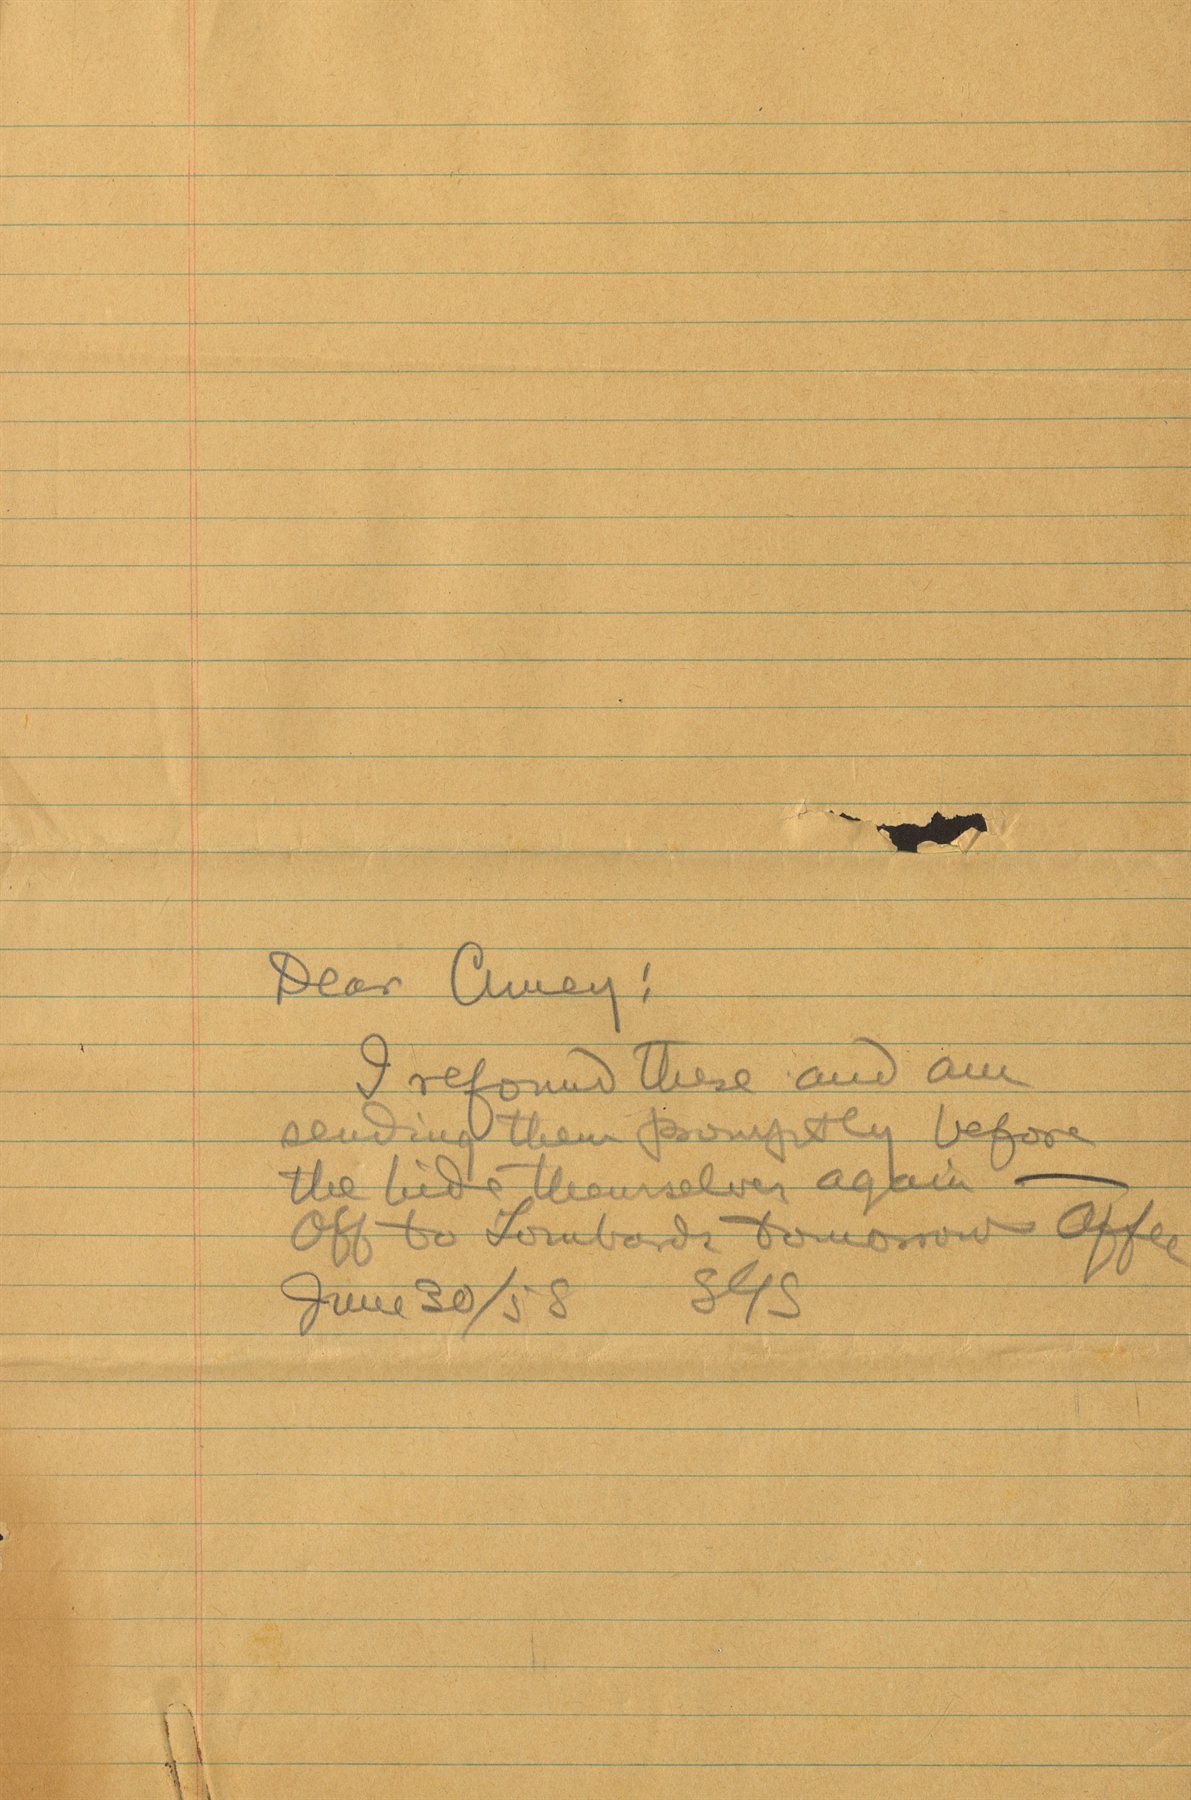 Dear Amey!
I refound these and am
sending them promptly before
the hide themselves again —
Off to Lombards tomorrow
June 30/58 SGS